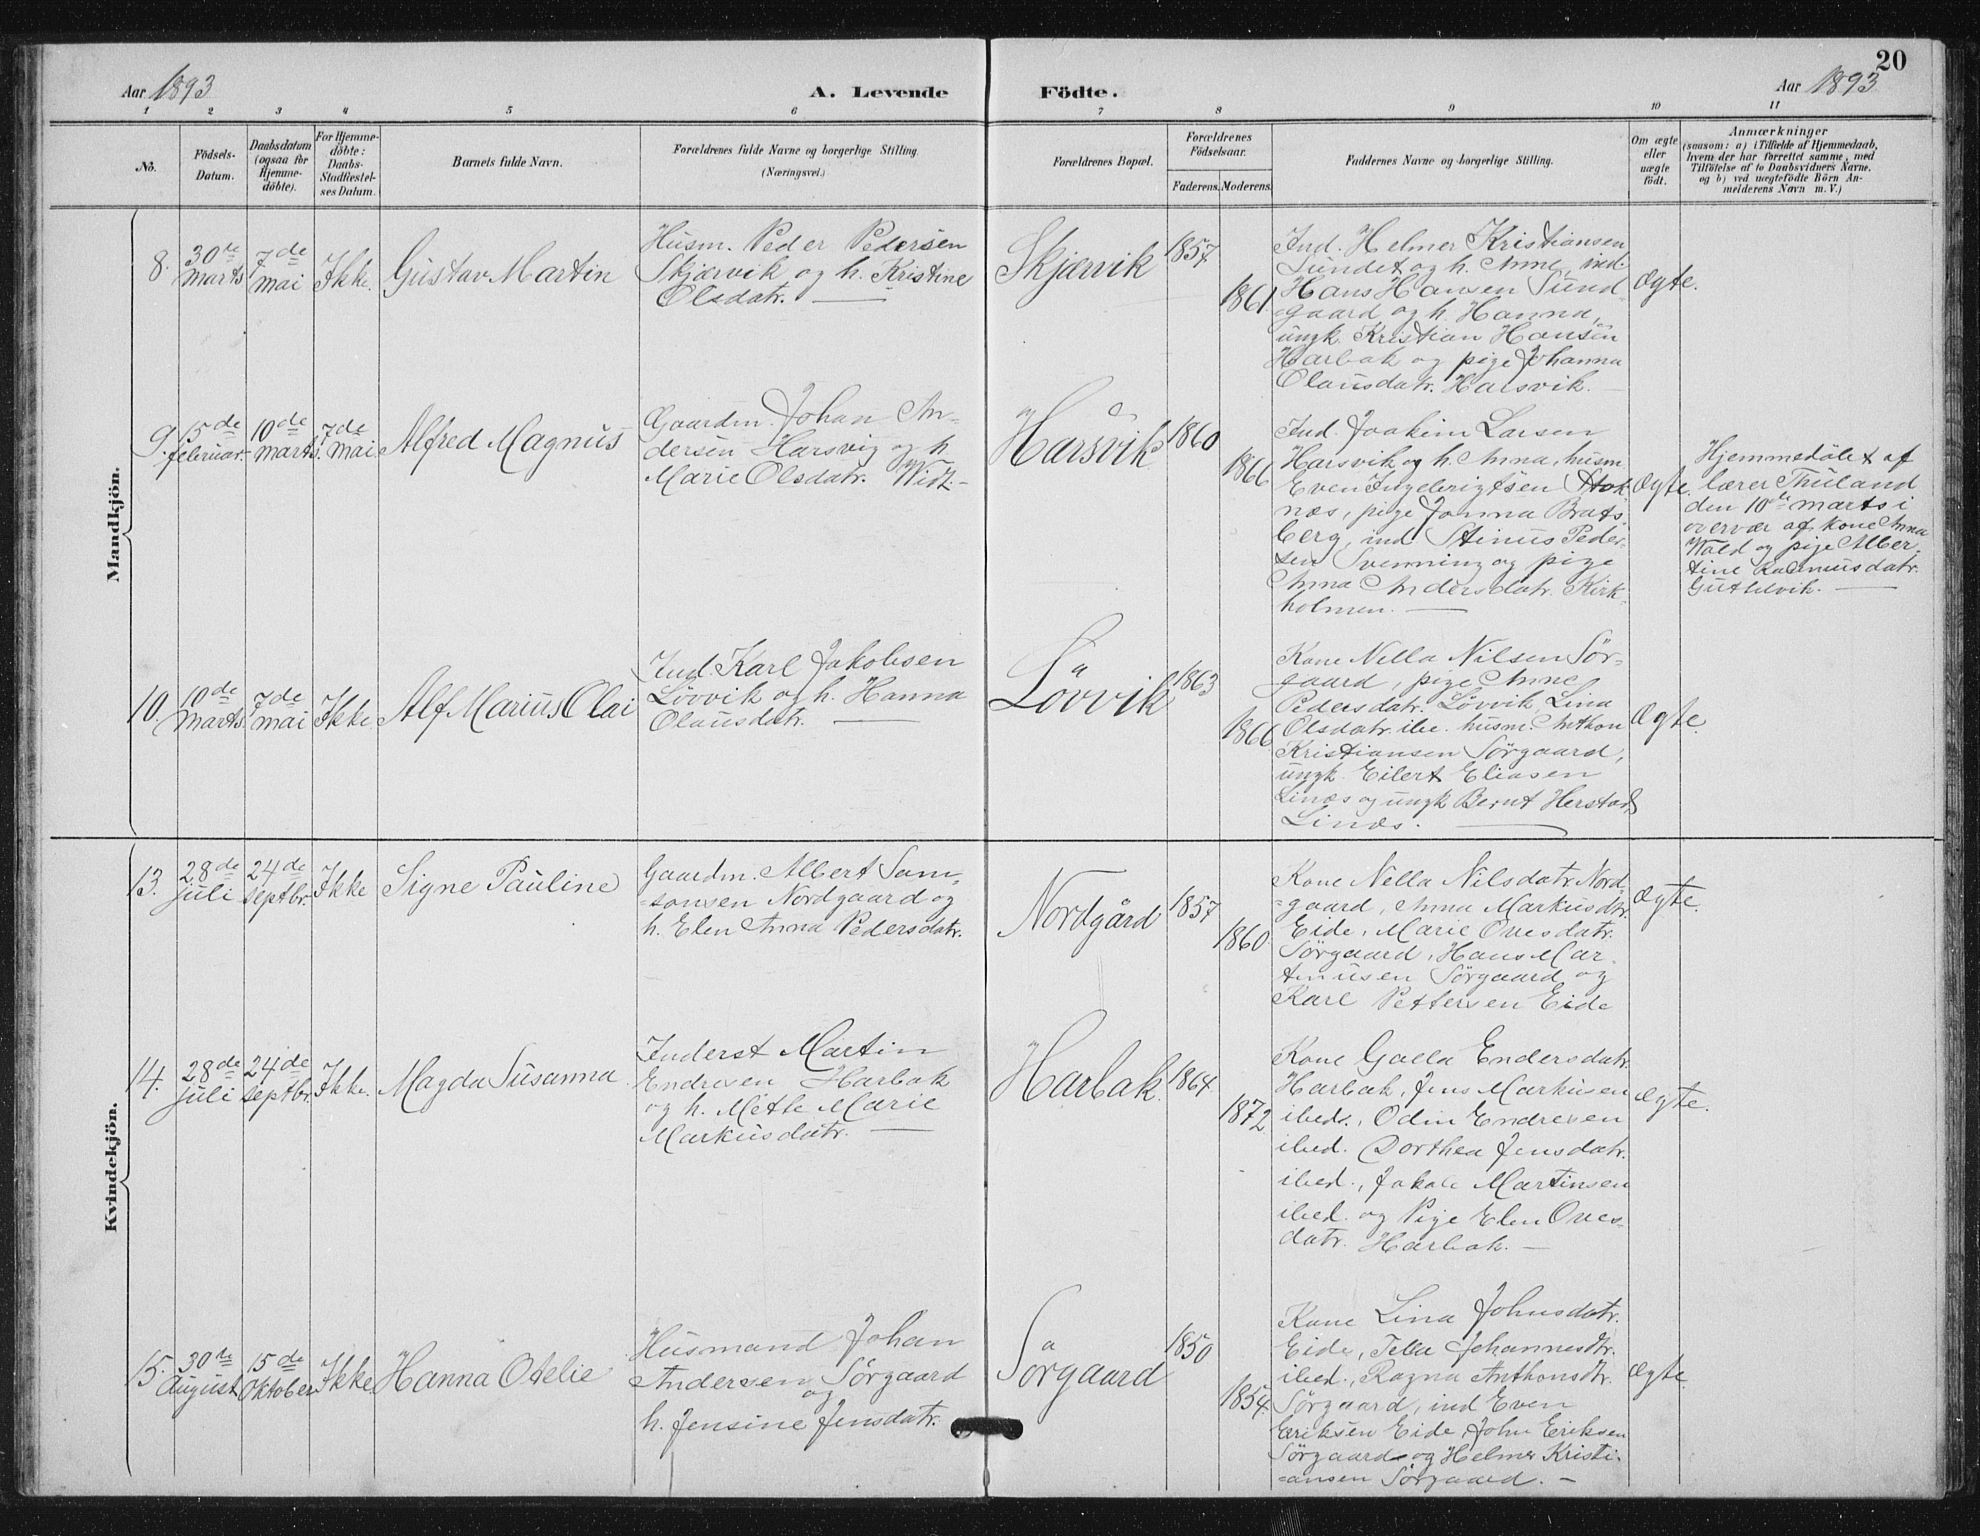 20
Aar 1893
A. Levende Födte.
Aar 1893
1 2 3 4 5 6 7 8 9 10 11
No.
Födsels-
Datum.
Daabsdatum
(ogsaa for
Hjemme-
döbte).
For Hjemme-
döbte:
Daabs-
Stadfæstel-
ses Datum.
Barnets fulde Navn.
Forældrenes fulde Navne og borgerlige Stilling.
(Næringsvei.)
Forældrenes Bopæl.
Forældrenes
Födselsaar.
Faderens. Moderens.
Faddernes Navne og borgerlige Stilling.
Om ægte
eller
uægte
født.
Anmærkninger
(saasom: a) i Tilfælde af Hjemmedaab,
hvem der har forrettet samme, med
Tilföielse af to Daabsvidners Navne,
og b) ved uægtefödte Börn An-
melderens Navn m. V.)
Mandkjön.
8.
30te
Marts
7de
mai
Ikke.
Gustav Martin
Husm. Peder Pedersen
Skjærvik og h. Kristine
Olsdatr. —
Skjærvik
1857
1861.
Ind. Helmer Kristiansen
Sundet og h. Anne, ind.
Hans Hansen Sund-
gaard og h. Hanna,
ungk. Kristian Hansen
Harbak og pige Johanna
Olausdatr. Harsvik. —
ægte.
9.
15de
februar.
10de
marts.
7de
mai
Alfred Magnus
Gaardm. Johan An-
dersen Harsvig og h.
Marie Olsdatr.
Harsvik
1860
1866
Ind. Joakim Larsen
Harsvik og h. Anna, husm.
Even Ingebrigtsen Stok-
næs, pige Jonna Brats-
berg, ind Stinus Peder-
sen Svenning og pige
Anna Andersdatr. Kirk-
holmen. —
ægte.
Hjemmedöbt af
lærer Thuland
den 10de marts i
overvær af kone Anna
Wold og pige Alber-
tine Rasmusdatr.
10.
10de
Marts
7de
mai
Ikke
Alf Marius Olai
Ind. Karl Jakobsen
Lövvik og h. Hanna
Olausdatr. —
Lövvik
1863
1866
Kone Nella Nilsen Sör-
gaard, pige Anne
Pedersdatr. Lövvik, Lina
Olsdatr. ibe. husm. Anthon
Kristiansen Sörgaard,
ungk. Eilert Eliasen
Linæs og ungk Bernt Herstad
Linæs. —
ægte.
Kvindekjön.
13.
28de
juli
24de
septbr.
Ikke
Signe Pauline
Gaardm. Albert Sam-
sonsen Nordgaard og
h. Elen Anna Pedersdatr.
Nordgård
1857
1860
Kone Nella Nilsdatr. Nord-
gaard, Anna Markusdtr.
Eide, Marie Ovesdatr.
Sörgaard, Hans Mar-
tinusen Sörgaard og
Karl Pettersen Eide
ægte.
14.
28de
juli
24de
septbr.
Ikke.
Magda Susanna
Inderst Martin
Endresen Harbak
og h. Mette Marie
Markusdatr. —
Harbak.
1864.
1872
Kone Golla Endersdatr.
Harbak, Jens Markusen
ibed., Odin Endresen
ibed. Dorthea Jensdatr.
ibed., Jakob Martinsen
ibed. og Pige Elen Oves-
datr. Harbak. —
ægte.
15.
30te
August
15de
Oktober
Ikke
Hanna Otelie
Husmand Johan
Andersen Sörgaard
og
h. Jensine Jensdatr.
Sörgaard
1850
1854.
Kone Lina Johnsdatr.
Eide, Johannesdtr.
ibed., Ragna Anthonsdtr.
Sörgaard, ind Even
Eriksen Eide, John Eriksen
Sörgaard og Helmer Kristi-
ansen Sörgaard. —
ægte.